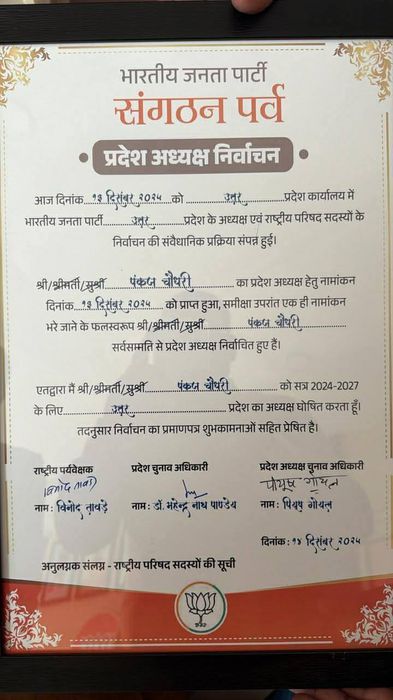 भारतीय जनता पार्टी
संगठन पर्व
प्रदेश अध्यक्ष निर्वाचन
आज दिनांक १३ दिसंबर २०२५ को उत्तर प्रदेश कार्यालय में
भारतीय जनता पार्टी उत्तर प्रदेश के अध्यक्ष एवं राष्ट्रीय परिषद सदस्यों के
निर्वाचन की संवैधानिक प्रक्रिया संपन्न हुई।
श्री/श्रीमती/सुश्री पंकज चौधरी का प्रदेश अध्यक्ष हेतु नामांकन
दिनांक १३ दिसंबर २०२५ को प्राप्त हुआ, समीक्षा उपरांत एक ही नामांकन
भरे जाने के फलस्वरूप श्री/श्रीमती/सुश्री पंकज चौधरी
सर्वसम्मति से प्रदेश अध्यक्ष निर्वाचित हुए हैं।
एतद्वारा मैं श्री/श्रीमती/सुश्री पंकज चौधरी को सत्र 2024-2027
के लिए उत्तर प्रदेश का अध्यक्ष घोषित करता हूँ।
तदनुसार निर्वाचन का प्रमाणपत्र शुभकामनाओं सहित प्रेषित है।
राष्ट्रीय पर्यवेक्षक प्रदेश चुनाव अधिकारी प्रदेश अध्यक्ष चुनाव अधिकारी
पीयूष गोयल
नाम: विनोद तावड़े नाम: डॉ. महेन्द्र नाथ पाण्डेय नाम: पियूष गोयल
दिनांक: १४ दिसंबर २०२५
अनुलग्नक संलग्न - राष्ट्रीय परिषद सदस्यों की सूची